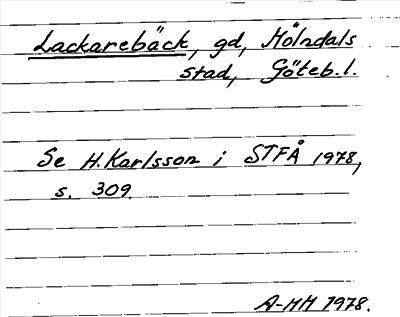 Lackarebäck, gd, Mölndals
stad, Göteb. l.
Se H. Karlsson i STFÅ 1978,
s. 309.
A-MM 1978.